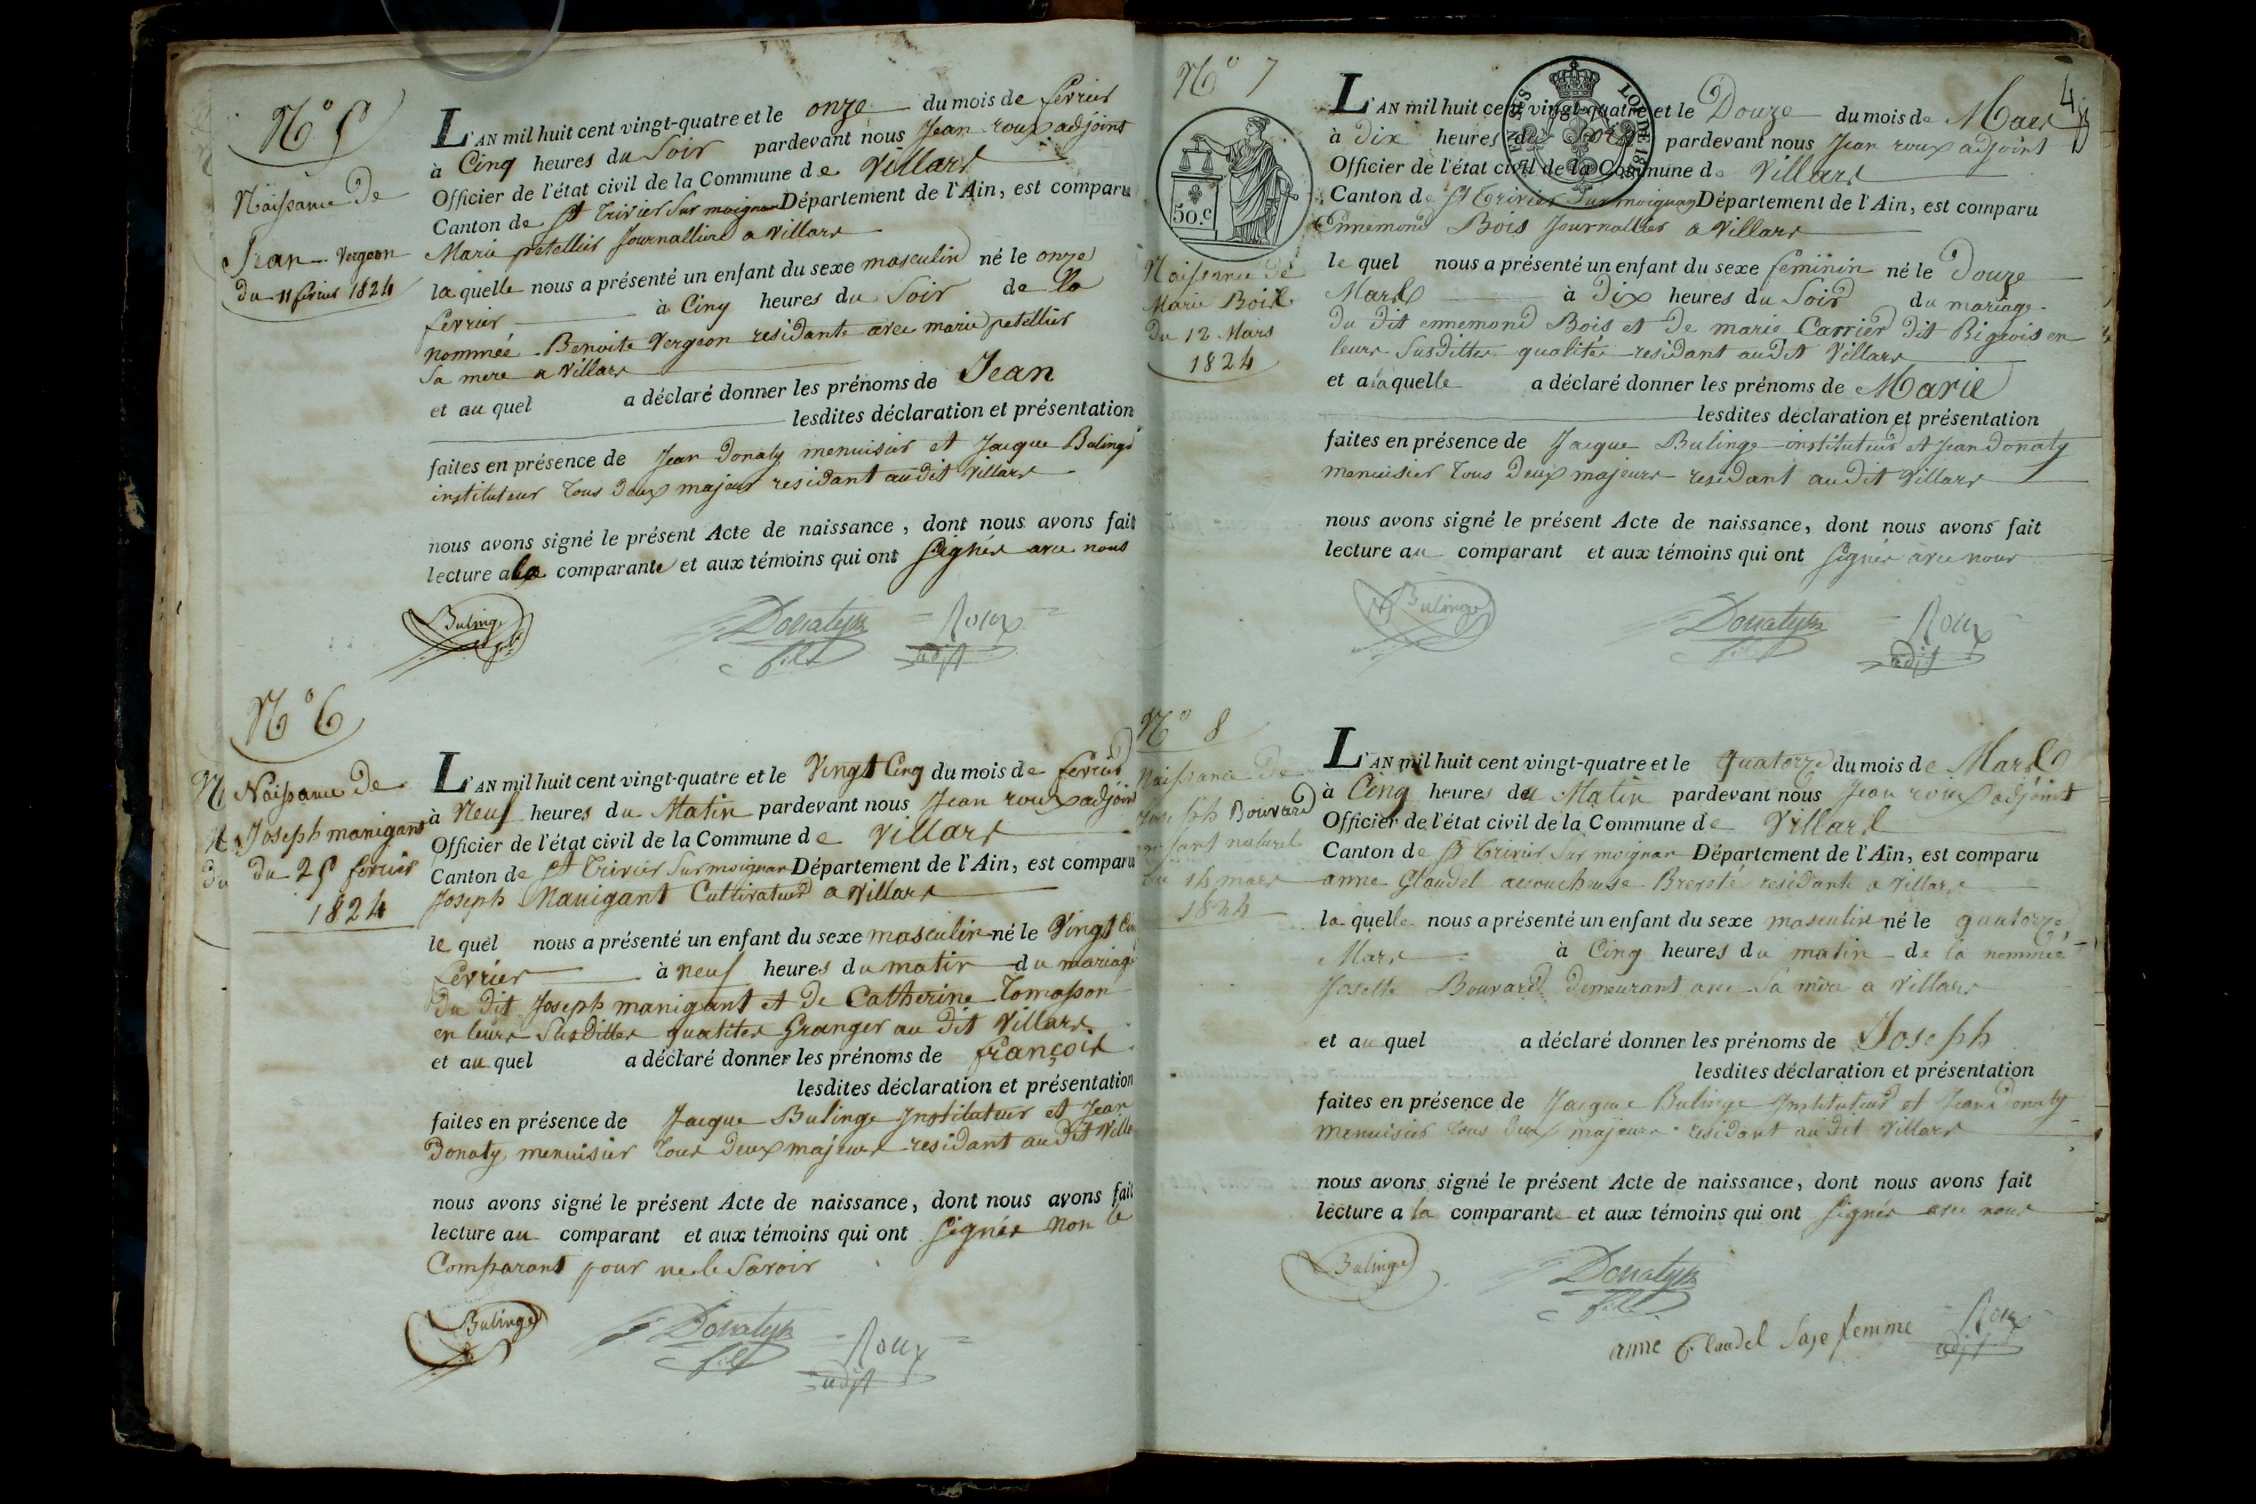 N° 5
Naissance de
Jean Vergeon
du 11 fevrier 1824
L'AN mil huit cent vingt-quatre et le onze du mois de fevrier
à Cinq heures du Soir pardevant nous Jean roux adjoint
Officier de l'état civil de la Commune de Villars
Canton de St Trivier Sur moignan Département de l'Ain, est comparu
Marie petellier Journalliere a Villars
la quelle nous a présenté un enfant du sexe masculin né le onze
fevrier à Cinq heures du Soir de la
nommée Benoite Vergeon residante avec marie petellier
Sa mere a Villars
et au quel a déclaré donner les prénoms de Jean
lesdites déclaration et présentation
faites en présence de Jean Donaty menuisier et Jacque Bulinge
instituteur tous deux majeur residant audit Villars
nous avons signé le présent Acte de naissance, dont nous avons fait
lecture a la comparante et aux témoins qui ont Signés avec nous
Bulinge Donaty fils Roux adjt
N° 6
Naissance de
Joseph manigant
du 25 fevrier
1824
L'AN mil huit cent vingt-quatre et le Vingt Cinq du mois de fevrier
à Neuf heures du Matin pardevant nous Jean roux adjoint
Officier de l'état civil de la Commune de Villars
Canton de St Trivier Sur moignan Département de l'Ain, est comparu
Joseph Manigant Cultivateur a Villars
le quel nous a présenté un enfant du sexe masculin né le Vingt Cinq
fevrier à neuf heures du matin du mariage
du dit Joseph manigant et de Catherine Tomasson
en leurs Susdittes qualites Granger au dit Villars
et au quel a déclaré donner les prénoms de françois
lesdites déclaration et présentation
faites en présence de Jacque Bulinge Instituteur et Jean
Donaty menuisier tous deux majeurs residant au dit Villa
nous avons signé le présent Acte de naissance, dont nous avons fait
lecture au comparant et aux témoins qui ont Signés non le
Comparant pour ne le Savoir
Bulinge Donaty fils Roux adjt
4
N° 7
50. c
Naissance de
Marie Bois
du 12 Mars
1824
L'AN mil huit cent vingt-quatre et le Douze du mois de Mars
à Dix heures du Soir pardevant nous Jean roux adjoint
Officier de l'état civil de la Commune de Villars
Canton de St Trivier Sur moignan Département de l'Ain, est comparu
Ennemond Bois Journallier a Villars
le quel nous a présenté un enfant du sexe feminin né le Douze
Mars à Dix heures du Soir du mariage
du dit ennemond Bois et de marie Carrier dit Bigeois en
leurs Susdittes qualités residant audit Villars
et a laquelle a déclaré donner les prénoms de Marie
lesdites déclaration et présentation
faites en présence de Jacque Bulinge instituteur et Jean Donaty
menuisier tous deux majeurs residant au dit Villars
nous avons signé le présent Acte de naissance, dont nous avons fait
lecture au comparant et aux témoins qui ont Signés avec nous
Bulinge Donaty fils Roux adjt
N° 8
Naissance de
Joseph Bouvard
enfant naturel
du 14 mars
1824
L'AN mil huit cent vingt-quatre et le quatorze du mois de Mars
à Cinq heures du Matin pardevant nous Jean roux adjoint
Officier de l'état civil de la Commune de Villars
Canton de St Trivier Sur moignan Département de l'Ain, est comparu
anne Glaudel accoucheuse Breveté residante a Villars
la quelle nous a présenté un enfant du sexe masculin né le quatorze
Mars à Cinq heures du matin de la nommée
Josette Bouvard demeurant avec Sa mère a Villars
et au quel a déclaré donner les prénoms de Joseph
lesdites déclaration et présentation
faites en présence de Jacque Bulinge Instituteur et Jean Donaty
menuisier tous deux majeurs residant au dit Villars
nous avons signé le présent Acte de naissance, dont nous avons fait
lecture a la comparante et aux témoins qui ont Signés avec nous
Bulinge Donaty fils Roux adjt
anne Glaudel Saje femme